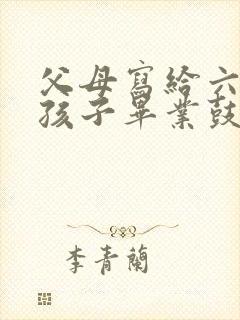 父母寫給六
孩子畢業鼓
李青蘭